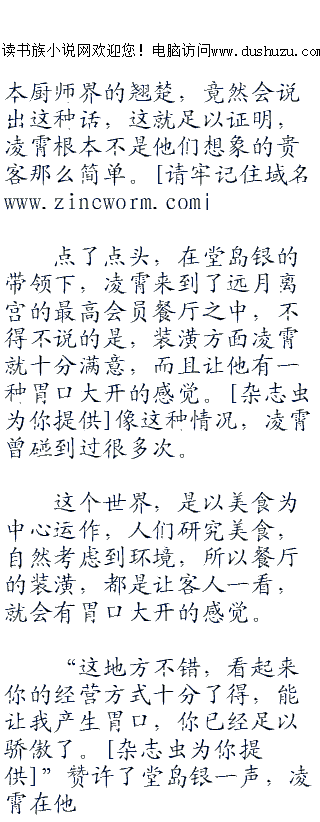 读书族小说网欢迎您！电脑访问www.dushuzu.com
本厨师界的翘楚，竟然会说
出这种话，这就足以证明，
凌霄根本不是他们想象的贵
客那么简单。[请牢记住域名
www.zincworm.com]
点了点头，在堂岛银的
带领下，凌霄来到了远月离
宫的最高会员餐厅之中，不
得不说的是，装潢方面凌霄
就十分满意，而且让他有一
种胃口大开的感觉。[杂志虫
为你提供]像这种情况，凌霄
曾碰到过很多次。
这个世界，是以美食为
中心运作，人们研究美食，
自然考虑到环境，所以餐厅
的装潢，都是让客人一看，
就会有胃口大开的感觉。
“这地方不错，看起来
你的经营方式十分了得，能
让我产生胃口，你已经足以
骄傲了。[杂志虫为你提
供]”赞许了堂岛银一声，凌
霄在他